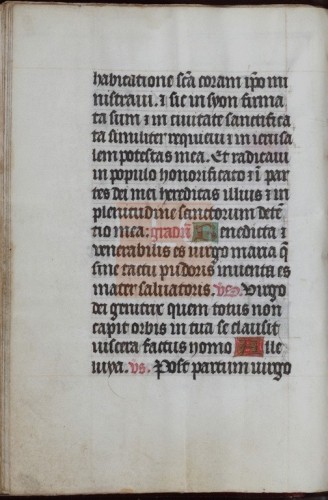 habitatione sc̄a coram ip̄o mi
nistraui. ⁊ sic in syon firma
ta sum ⁊ in ciuitate sanctifica
ta similiter requieui ⁊ in ierusa
lem potestas mea. Et radicaui
in populo honorificato ⁊ ī par
tes dei mei hereditas illius ⁊ in
plenitudine sanctorum detē
tio mea: gradū Benedicta ⁊
venerabilis es uirgo maria q̄
sine tactu pudoris inuenta es
mater saluatoris. vs̄. Uirgo
dei genitrix quem totus non
capit orbis in tua se clausit
uiscera factus homo Alle
luya. vs. Post partum uirgo